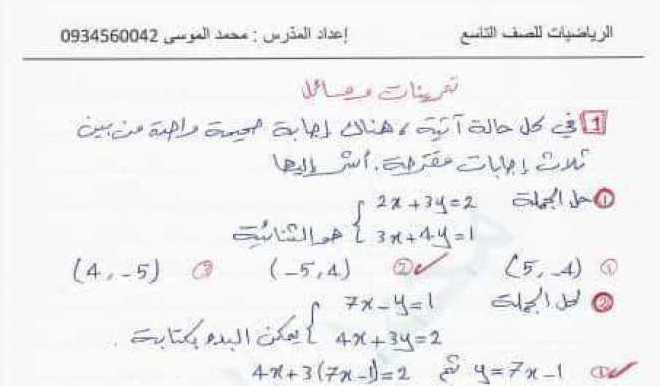 الرياضيات للصف التاسع إعداد المدرس : محمد الموسى 0934560042
تمرينات ومسائل
1 في كل حالة آتية، هناك إجابة صحيحة واحدة من بين
ثلاث إجابات مقترحة. أشر إليها
① حل الجملة { 2x+3y=2
3x+4y=1 هو الثنائية
① (5,-4) ② ✓ (-5,4) ③ (4,-5)
② لحل الجملة { 7x-y=1
4x+3y=2 يمكن البدء بكتابة .
① ✓ y=7x-1 ثم 4x+3(7x-1)=2